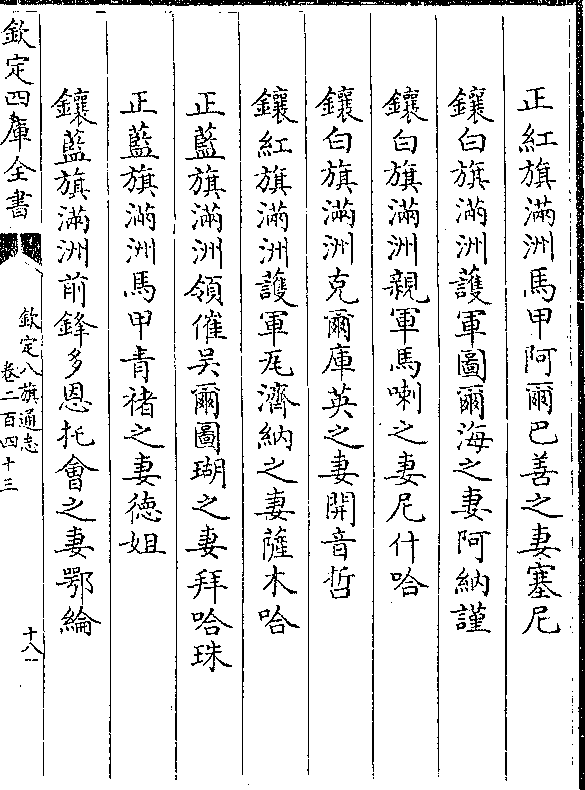 正紅旗滿洲馬甲阿爾巴善之妻塞尼
鑲白旗滿洲護軍圖爾海之妻阿納謹
鑲白旗滿洲親軍馬喇之妻尼什哈
鑲白旗滿洲克爾庫英之妻開音哲
鑲紅旗滿洲護軍兂濟納之妻薩木哈
正藍旗滿洲領催吴爾圖瑚之妻拜哈珠
正藍旗滿洲馬甲青禇之妻德姐
鑲藍旗滿洲前鋒多恩托會之妻鄂綸
欽定四庫全書
欽定八旗通志
卷二百四十三
十八